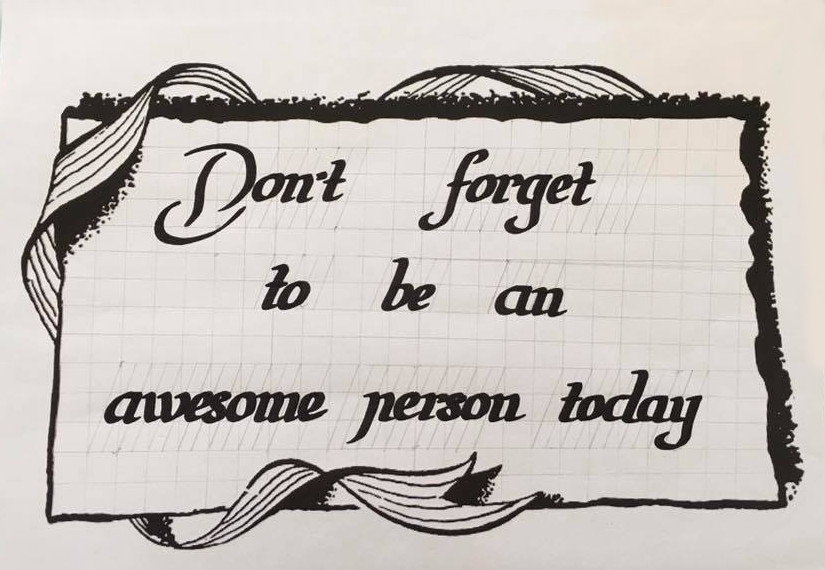 Don't forget
to be an
awesome person today